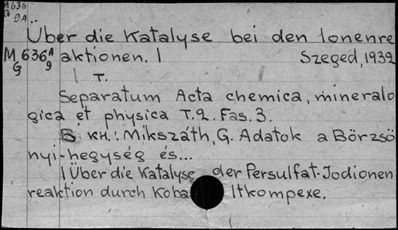 M 636
G 9A
Über die Katalyse bei den Ionenre
M 636 A aktionen. I Szeged, 1932
G 9
I T.
Separatum Acta chemica, mineralo
gica et physica T.2. Fas. 3.
B кн.: Mikszáth, G. Adatok a Börzsö
nyi-hegység és...
I Über die Katalyse der Persulfat-Jodionen
reaktion durch Koba ltkompexe.